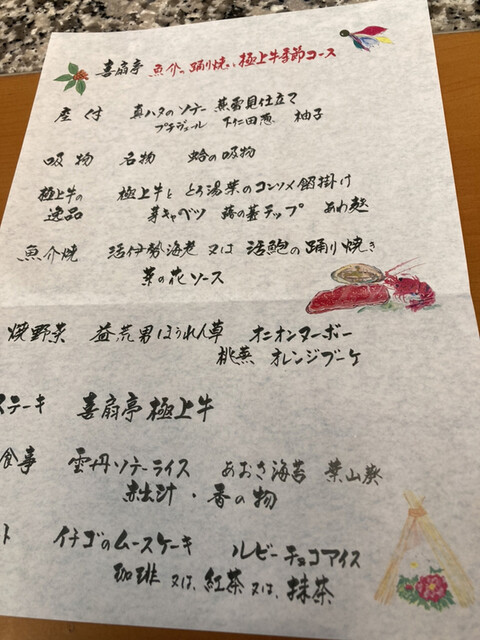 喜扇亭 魚介の踊り焼、極上牛季節コース
座くず 真ハタのソテー 蕪雪見仕立て
プチヴェール 下仁田葱 柚子
吸物 名物 蛤の吸物
極上牛の 極上牛と とろ湯葉のコンソメ餡掛け
逸品 芽キャベツ 蕗の薹チップ あわ麩
魚介焼 活伊勢海老 又は 活鮑の踊り焼き
菜の花ソース
焼野菜 益荒男ほうれん草 オニオンヌーボー
桃蕪 オレンジブーケ
ステーキ 喜扇亭 極上牛
食事 雲丹ソテーライス あおさ海苔 葉山葵
赤出汁・香の物
ト イチゴのムースケーキ ルビーチョコアイス
珈琲 又は、紅茶 又は、抹茶